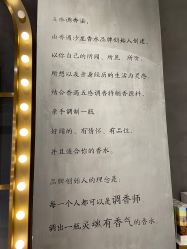 五感调香滴，
由香调沙龙香水品牌创始人创建，
以你自己的所闻、所见、所听、
所想以及亲身经历的生活为灵感，
结合香调五感调香特制香原料，
亲手调制一瓶
好闻的、有情怀、有品位、
并且适合你的香水。
品牌创始人的理念是：
每一个人都可以是调香师
调出一瓶灵魂有香气的香水